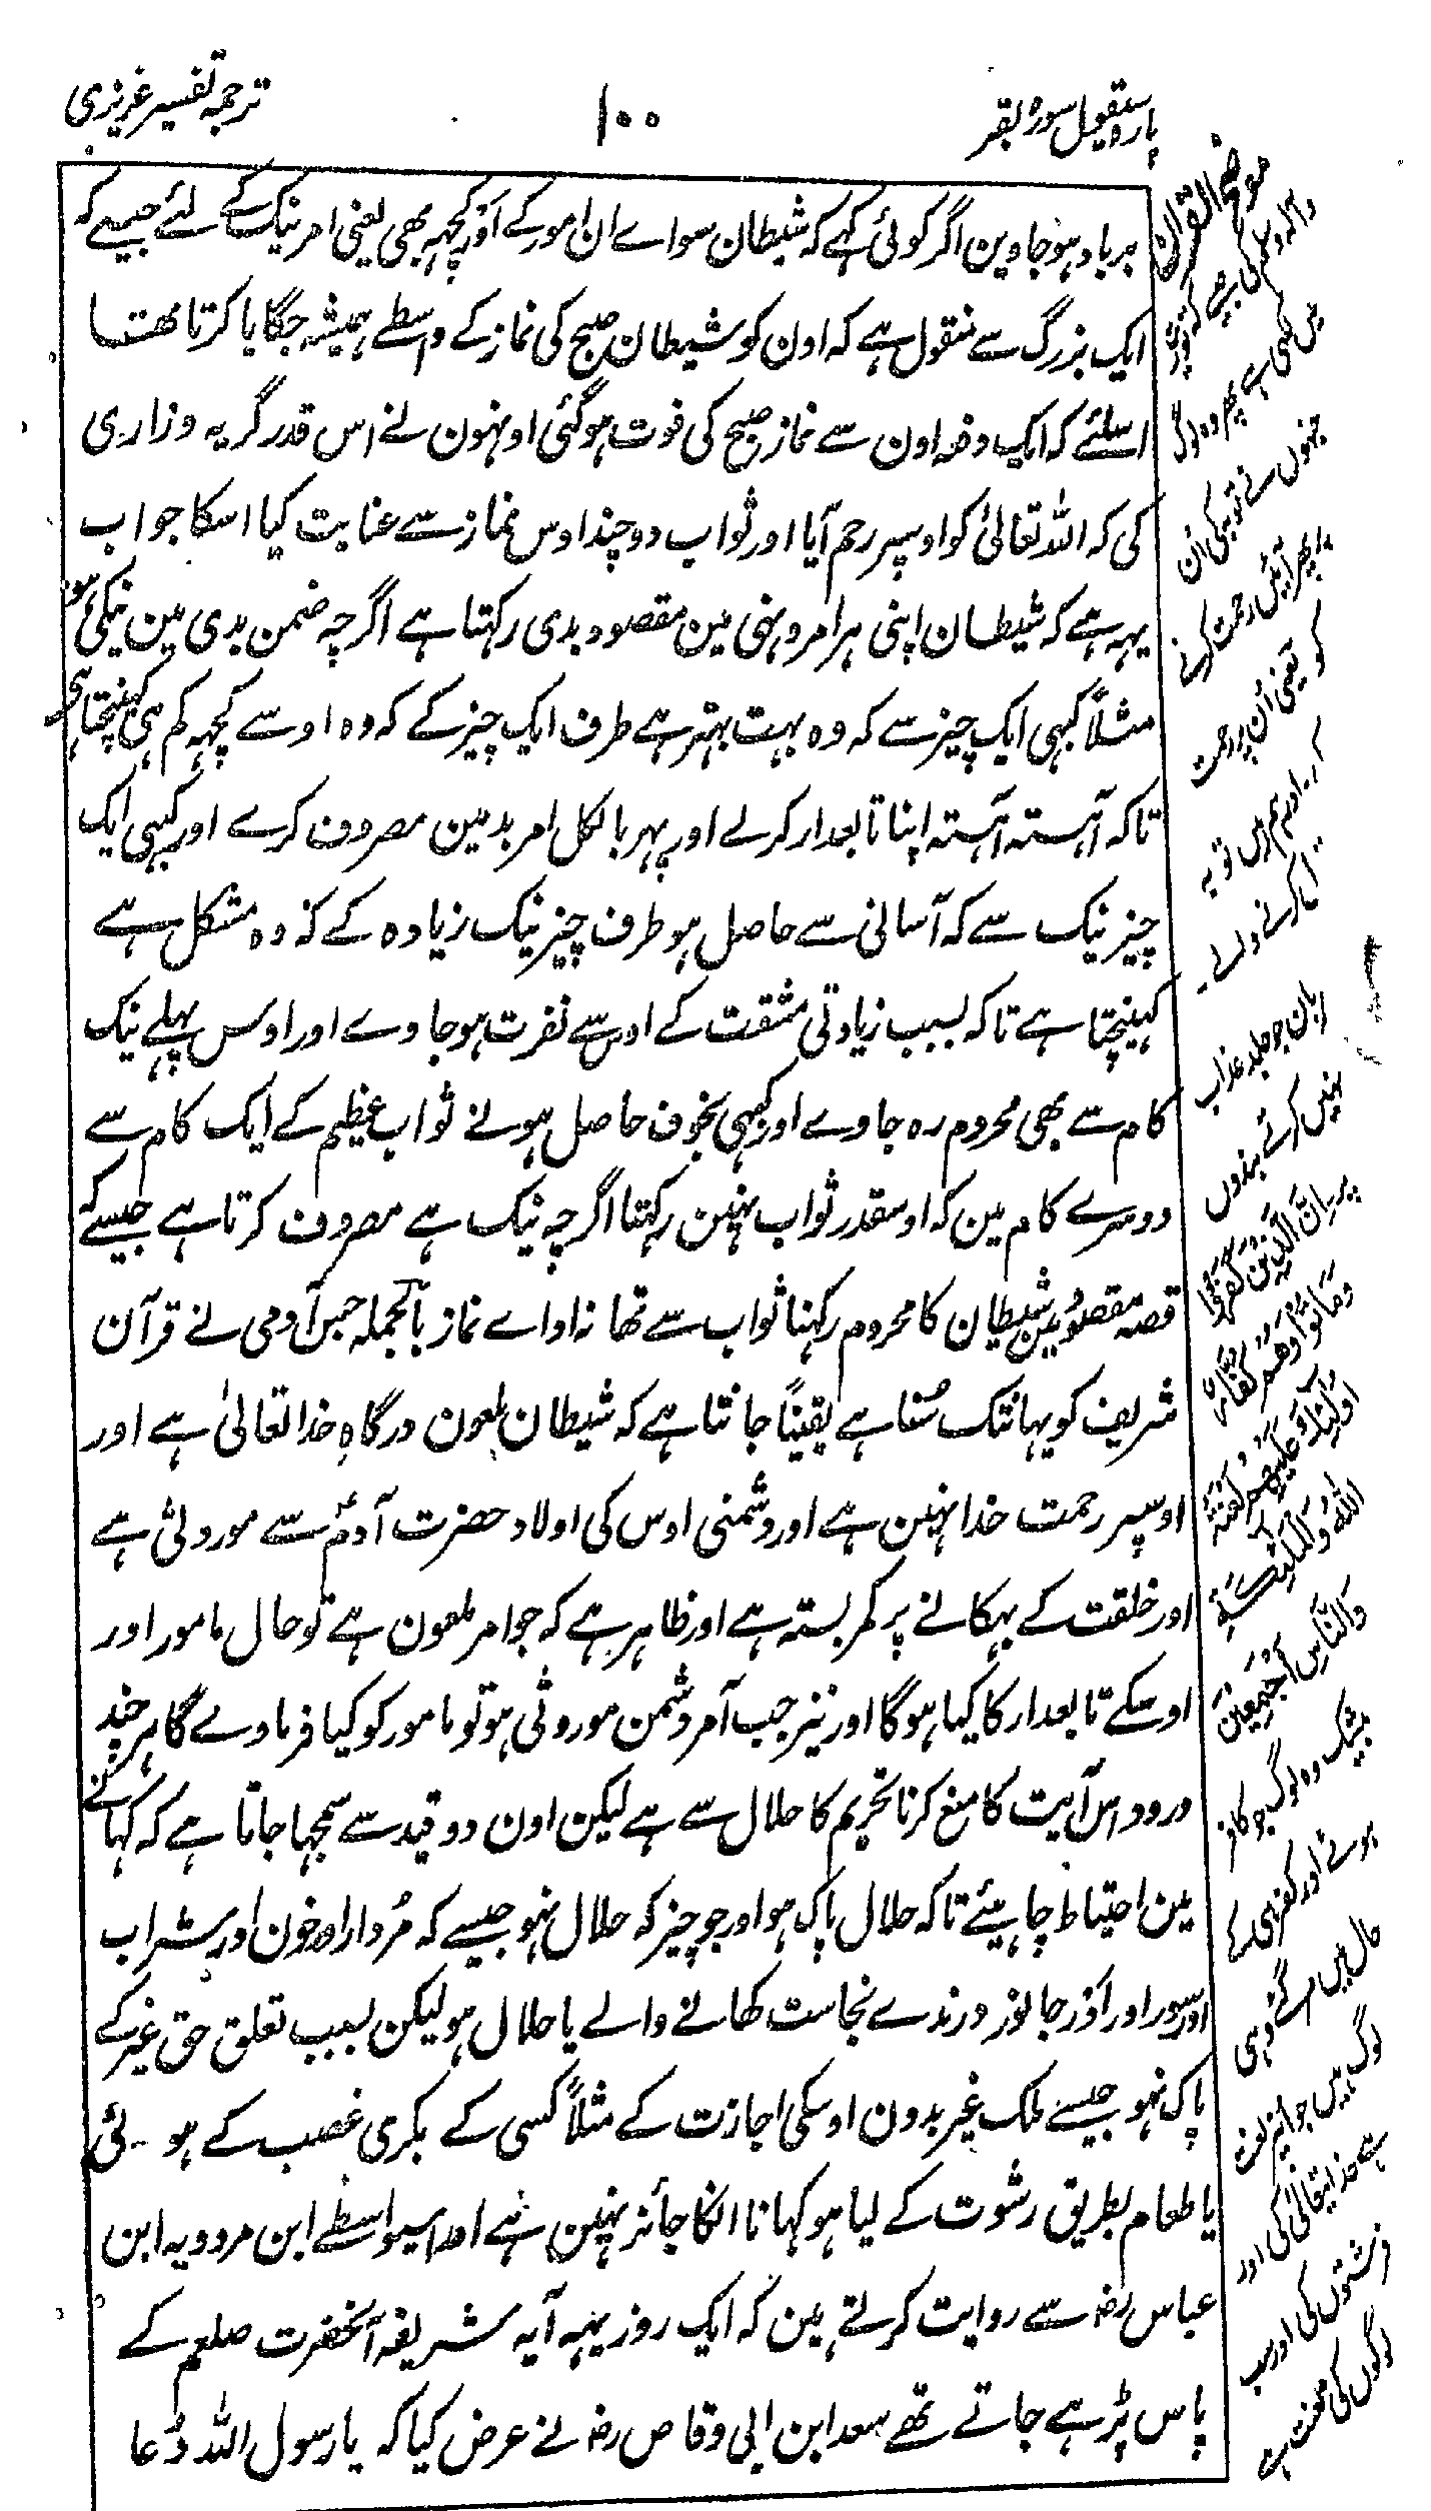 پارہ سیقول سورہ بقر
۱۰۰
ترجمہ تفسیر عزیزی
برباد ہو جاوین اگر کوئی کہے کہ شیطان سواے ان امور کے اور کچہہ بھی یعنی امر نیک کے لئے جیسے کہ
ایک بزرگ سے منقول ہے کہ اون کو شیطان صبح کی نماز کے واسطے ہمیشہ جگایا کرتا تھا
اسلئے کہ ایک دفعہ اون سے نماز صبح کی فوت ہو گئی اونہون نے اس قدر گریہ وزاری
کی کہ اللہ تعالیٰ کو اوسپر رحم آیا اور ثواب دو چند اوس نماز سے عنایت کیا اسکا جواب
یہہ ہے کہ شیطان اپنی ہر امر و نہی مین مقصود بدی رکہتا ہے اگرچہ ضمن بدی مین نیکی ہو
مثلاً کبہی ایک چیز سے کہ وہ بہت بہتر ہے طرف ایک چیز کے کہ وہ اوسے کچہہ کم ہی کہینچتا ہی
تاکہ آہستہ آہستہ اپنا تابعدار کرلے اور پہر بالکل امر بد مین مصروف کرے اور کبہی ایک
چیز نیک سے کہ آسانی سے حاصل ہو طرف چیز نیک زیادہ کے کہ وہ مشکل ہے
کہینچتا ہے تاکہ بسبب زیادتی مشقت کے اوس سے نفرت ہو جاوے اور اوس پہلے نیک
کام سے بھی محروم رہ جاوے اور کبہی بخوف حاصل ہونے ثواب عظیم کے ایک کام سے
دوسرے کام مین کہ اوسقدر ثواب نہین رکہتا اگرچہ نیک ہے مصروف کرتا ہے جیسے کہ
قصہ مین مقصود شیطان کا محروم رکہنا ثواب سے تھا نہ اداے نماز بالجملہ جس آدمی نے قرآن
شریف کو یہانتک سُنا ہے یقیناً جانتا ہے کہ شیطان ملعون درگاہِ خدا تعالیٰ ہے اور
اوسپر رحمت خدا نہین ہے اور دشمنی اوس کی اولاد حضرت آدمؑ سے موروثی ہے
اور خلقت کے بہکانے پر کمر بستہ ہے اور ظاہر ہے کہ جو امر ملعون ہے تو حال مامور اور
اوسکے تابعدار کا کیا ہوگا اور نیز جب آمر دشمن موروثی ہو تو مامور کو کیا فرماوے گا ہرچند
ورود اس آیت کا منع کرنا تحریم کا حلال سے ہے لیکن اون دو قید سے سمجہا جاتا ہے کہ کہانے
مین احتیاط چاہیئے تاکہ حلال پاک ہو اور جو چیز کہ حلال نہو جیسے کہ مُردار اور خون اور شراب
اور سور اور اور جانور درندے نجاست کھانے والے یا حلال ہو لیکن بسبب تعلق حق غیر کے
پاک نہو جیسے ملک غیر بدون اوسکی اجازت کے مثلاً کسی کے بکری غصب کے ہوئی
یا طعام بطریق رشوت کے لیا ہو کہانا انکا جائز نہین ہے اور اسیواسطے ابن مردویہ ابن
عباس رضہ سے روایت کرتے ہین کہ ایک روز یہہ آیہ شریفہ آنحضرت صلعم کے
پاس پڑہے جاتے تھے سعد ابن ابی وقاص رضہ نے عرض کیا کہ یا رسول اللہ دُعا
موضح القرآن
جنہوں نے توبہ کی ان
کو یعنی ان پر رحمت
اور ہم ہیں توبہ
نہیں کرتے بندوں
پر إِنَّ الَّذِينَ كَفَرُوا
وَمَاتُوا وَهُمْ كُفَّارٌ
أُولَٰئِكَ عَلَيْهِمْ لَعْنَةُ
اللَّهِ وَالْمَلَائِكَةِ
وَالنَّاسِ أَجْمَعِينَ
بیشک وہ لوگ جو کافر
ہوئے اور کفر ہی کے
حال میں مرگئے وہی
لوگ ہیں جو انپر لعنت
ہے خدا تعالیٰ کی اور
فرشتوں کی اور سب
لوگوں کی لعنت ہے